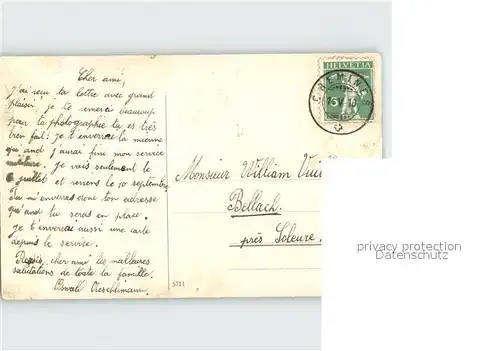 Cher ami,
J'ai reçu ta lettre avec grand
plaisir je te remerci beaucoup
pour ta photographie tu es très
bien fait. je t'enverrai la mienne
quand j'aurai fini mon service
militaire. je vais seulement le
et reviens le 10 septembre
Tu m'enverras donc ton adresse
quand tu seras en place.
je t'enverrai aussi une carte
depuis le service.
Reçois, cher ami les meilleures
salutations de toute la famille.
Oswald Aeschlimann.
5721
HELVETIA
CRÉMINES
Monsieur William
Bellach
près Soleure.
privacy protection
Datenschutz